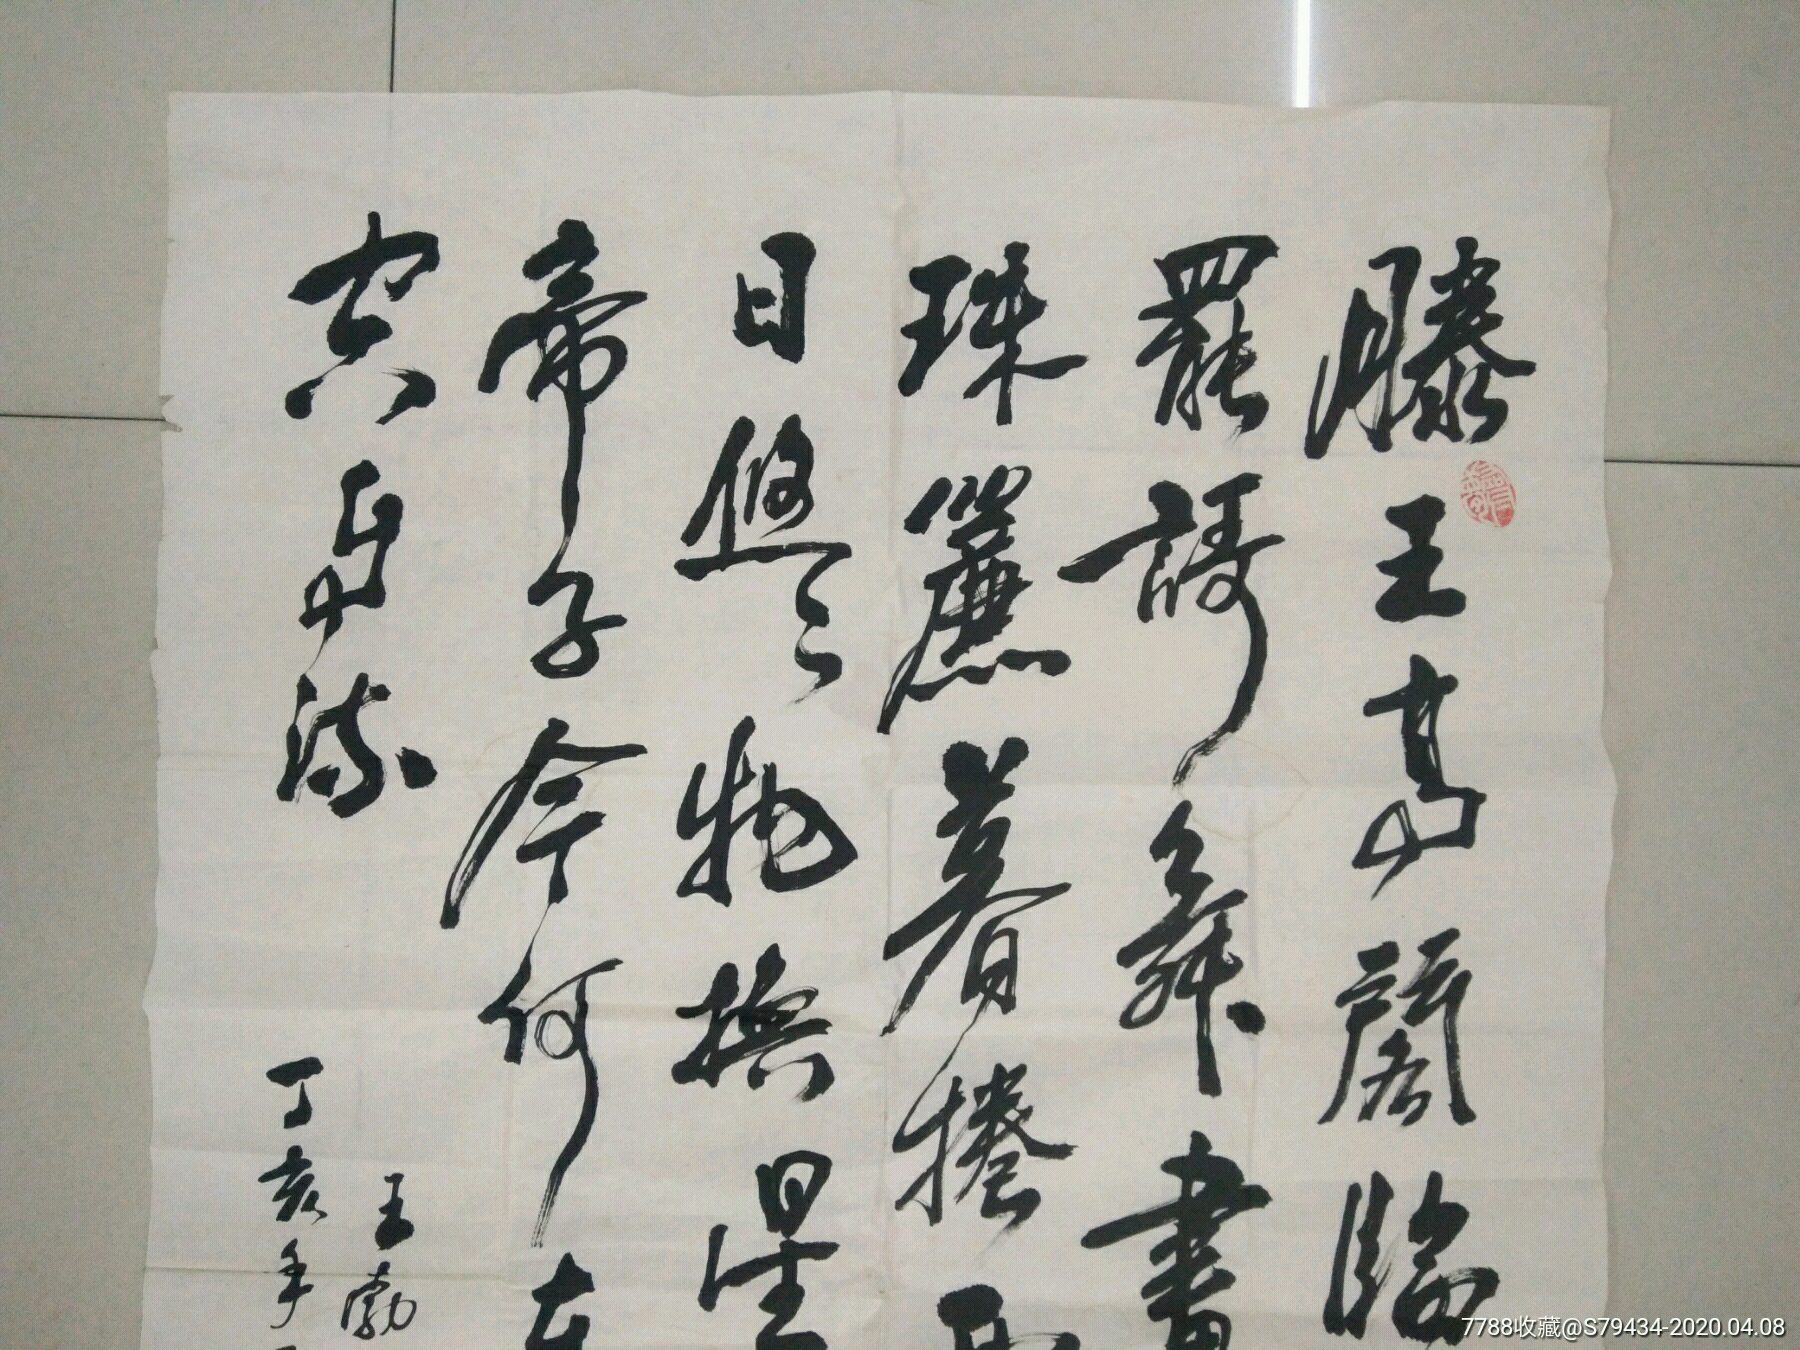 滕王高閣臨
罷謌舞畫
珠簾暮捲西
日悠々物換星
帝子今何在
空自流
王勃
丁亥年
7788收藏@S79434-2020.04.08